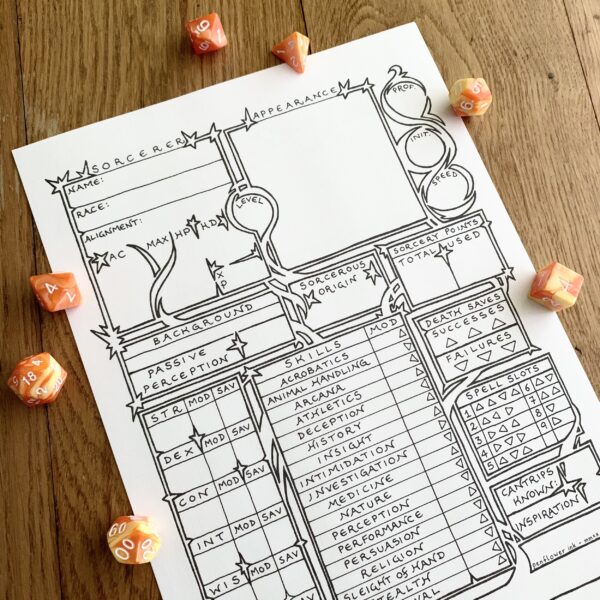 SORCERER
NAME:
RACE:
ALIGNMENT:
AC
MAX HP
HD
XP
LEVEL
APPEARANCE
PROF.
INIT.
SPEED
SORCEROUS
ORIGIN
SORCERY POINTS
TOTAL
USED
BACKGROUND
PASSIVE
PERCEPTION
STR MOD SAV
DEX MOD SAV
CON MOD SAV
INT MOD SAV
WIS MOD SAV
SKILLS MOD
ACROBATICS
ANIMAL HANDLING
ARCANA
ATHLETICS
DECEPTION
HISTORY
INSIGHT
INTIMIDATION
INVESTIGATION
MEDICINE
NATURE
PERCEPTION
PERFORMANCE
PERSUASION
RELIGION
SLEIGHT OF HAND
DEATH SAVES
SUCCESSES
FAILURES
SPELL SLOTS
1 6
2 7
3 8
4 9
5
CANTRIPS
KNOWN:
INSPIRATION
penflower ink
4
18
60
00